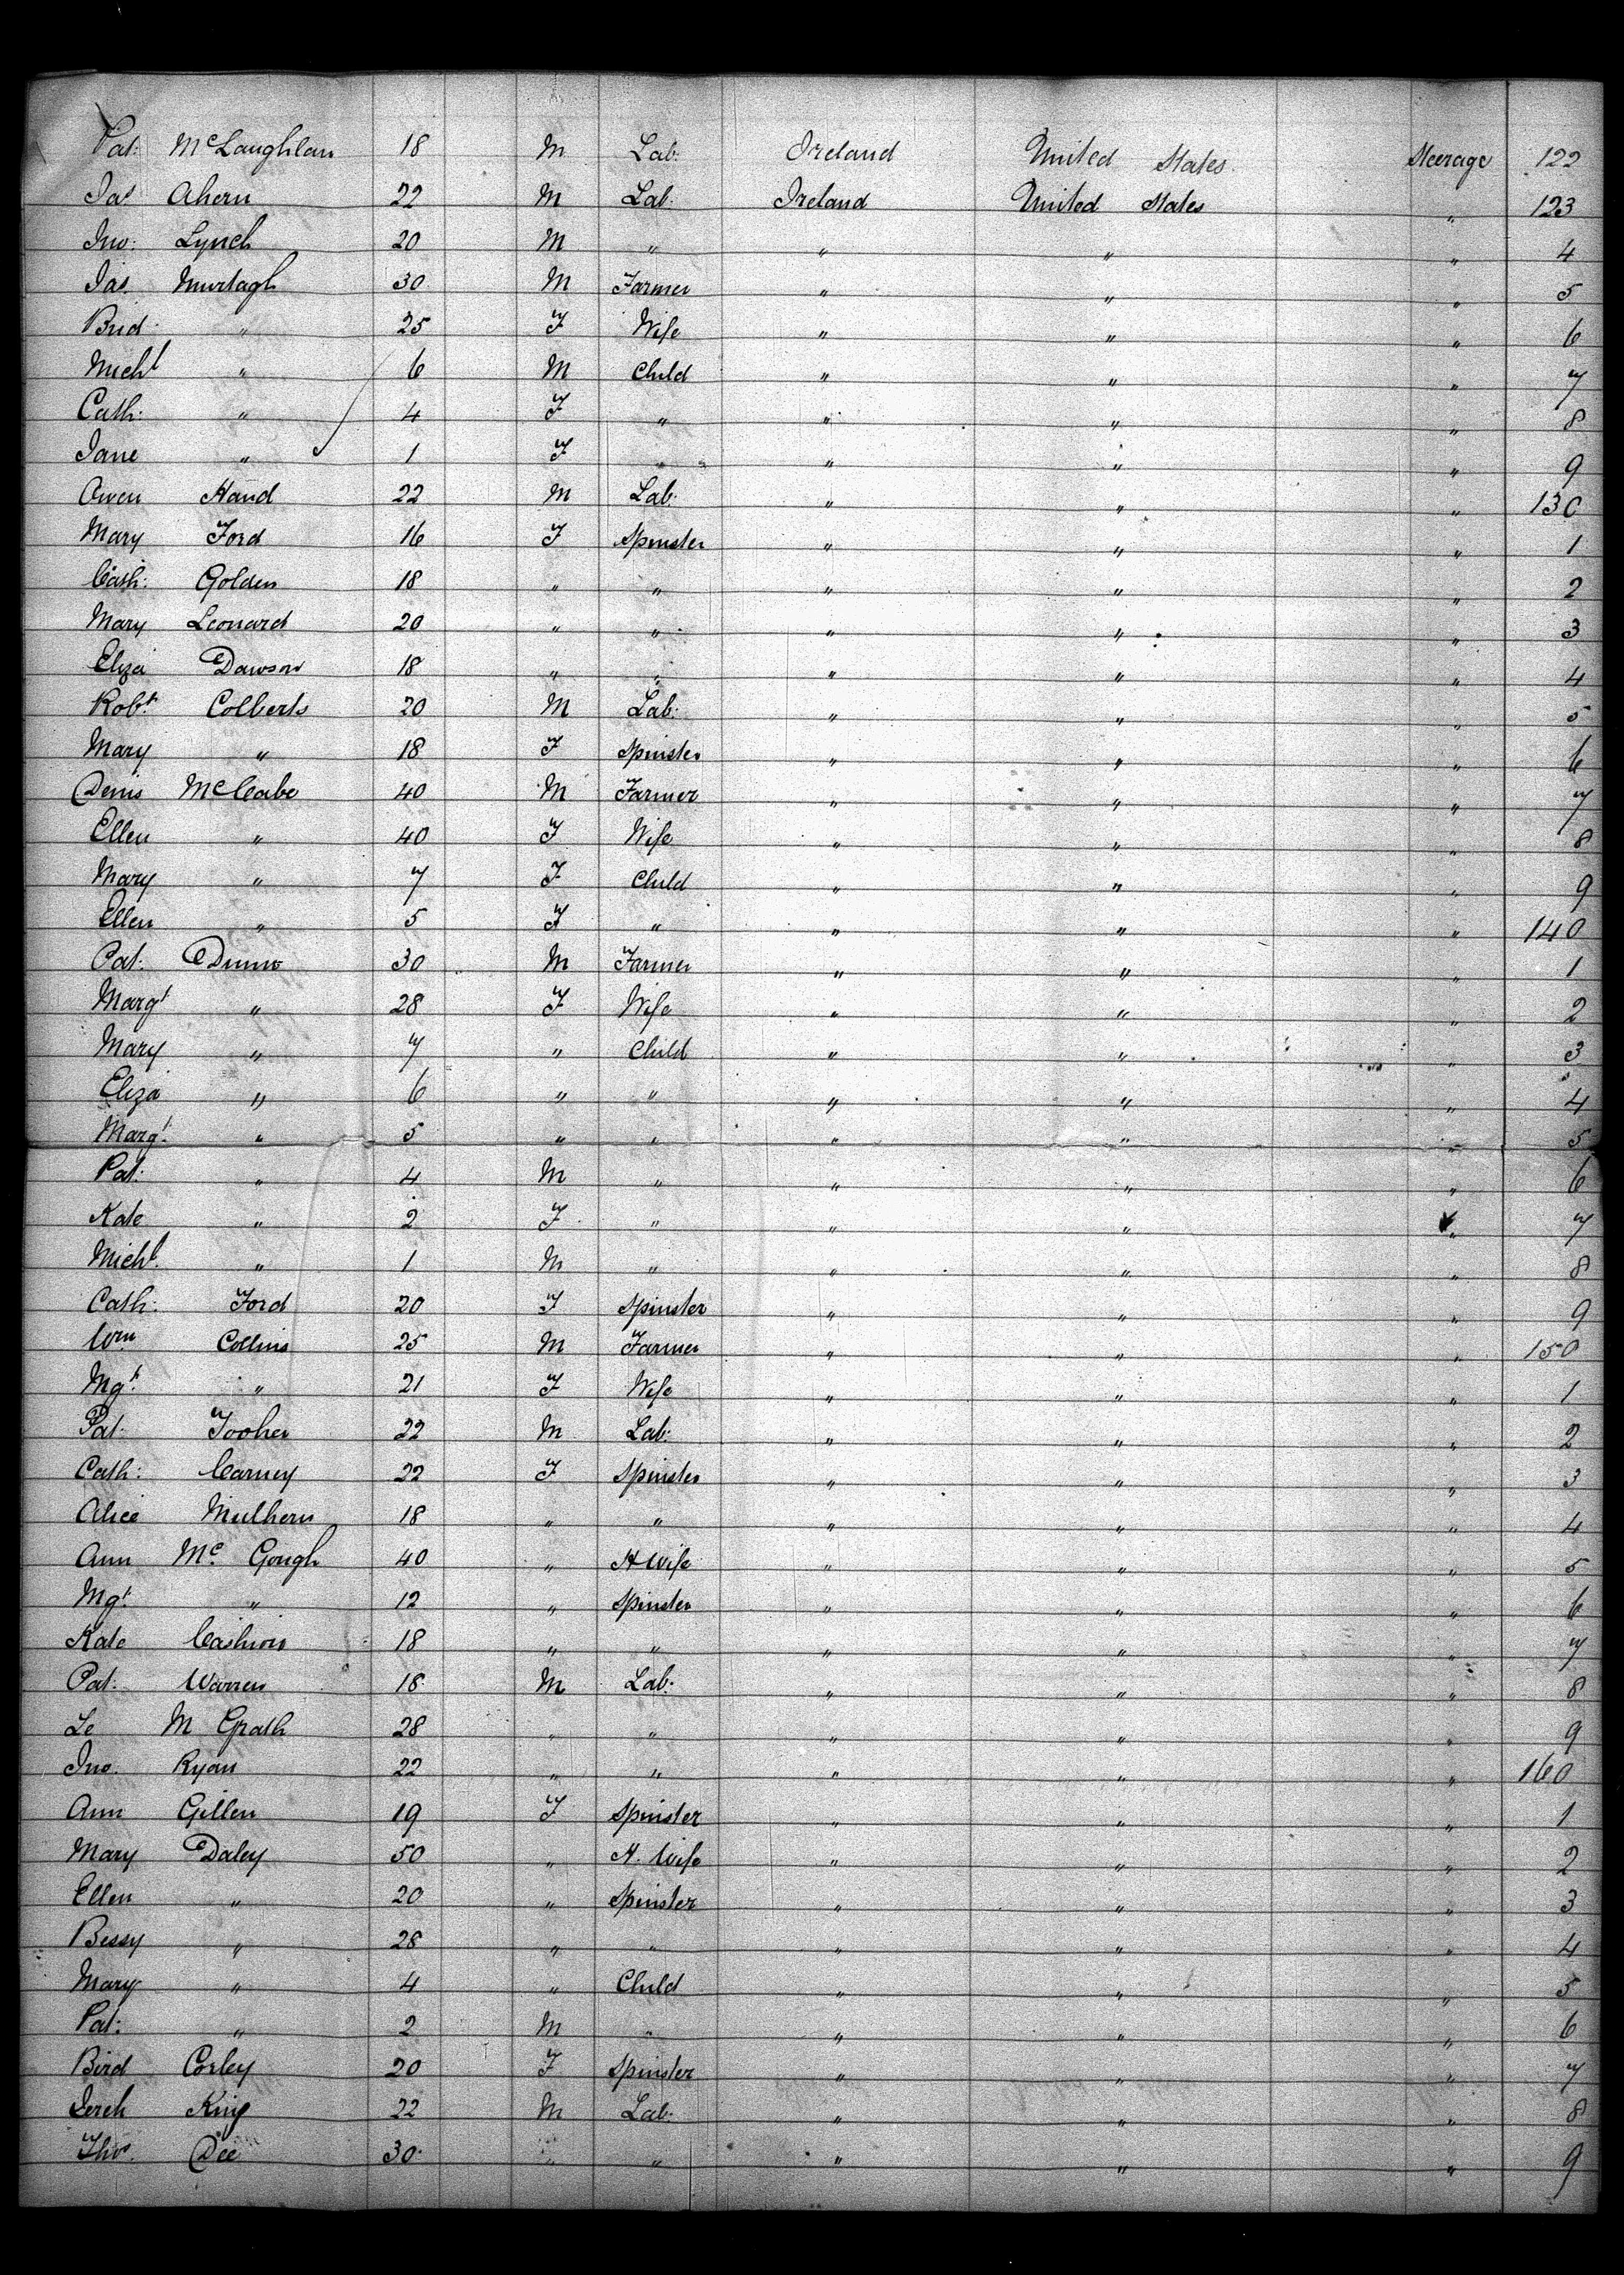 Pat: McLaughlan 18 M Lab: Ireland United States Steerage 122
Jas Ahern 22 M Lab: Ireland United States " 123
Jno: Lynch 20 M " " " " 4
Jas Murtagh 30 M Farmer " " " 5
Brid " 25 F Wife " " " 6
Michl " 6 M Child " " " 7
Cath: " 4 F " " " " 8
Jane " 1 F " " " " 9
Owen Hand 22 M Lab: " " " 130
Mary Ford 16 F Spinster " " " 1
Cath: Golden 18 " " " " " 2
Mary Leonard 20 " " " " " 3
Eliza Dawson 18 " " " " " 4
Robt. Colberts 20 M Lab: " " " 5
Mary " 18 F Spinster " " " 6
Denis McCabe 40 M Farmer " " " 7
Ellen " 40 F Wife " " " 8
Mary " 7 F Child " " " 9
Ellen " 5 F " " " " 140
Pat: Dunn 30 M Farmer " " " 1
Margt " 28 F Wife " " " 2
Mary " 7 " Child " " " 3
Eliza " 6 " " " " " 4
Margt. " 5 " " " " " 5
Pat: " 4 M " " " " 6
Kate " 2 F " " " " 7
Michl. " 1 M " " " " 8
Cath: Ford 20 F Spinster " " " 9
Wm Collins 25 M Farmer " " " 150
Mgt. " 21 F Wife " " " 1
Pat: Tooher 22 M Lab: " " " 2
Cath: Carney 22 F Spinster " " " 3
Alice Mulhern 18 " " " " " 4
Ann Mc. Gough 40 " H Wife " " " 5
Mgt. " 12 " Spinster " " " 6
Kate Cashion 18 " " " " " 7
Pat: Warren 18 M Lab: " " " 8
Le M Grath 28 " " " " " 9
Jno. Ryan 22 " " " " " 160
Ann Gillen 19 F Spinster " " " 1
Mary Daley 50 " H. Wife " " " 2
Ellen " 20 " Spinster " " " 3
Bessy " 28 " " " " " 4
Mary " 4 " Child " " " 5
Pat: " 2 M " " " " 6
Bird Corley 20 F Spinster " " " 7
Jerch King 22 M Lab: " " " 8
Thos. Dee 30 " " " " " 9